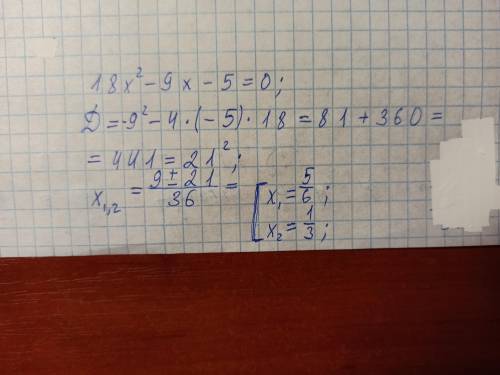 18x² - 9x - 5 = 0;
D = -9² - 4 · (-5) · 18 = 81 + 360 =
= 441 = 21²;
x₁,₂ = (9 ± 21)/36 = [ x₁ = 5/6;
x₂ = 1/3;